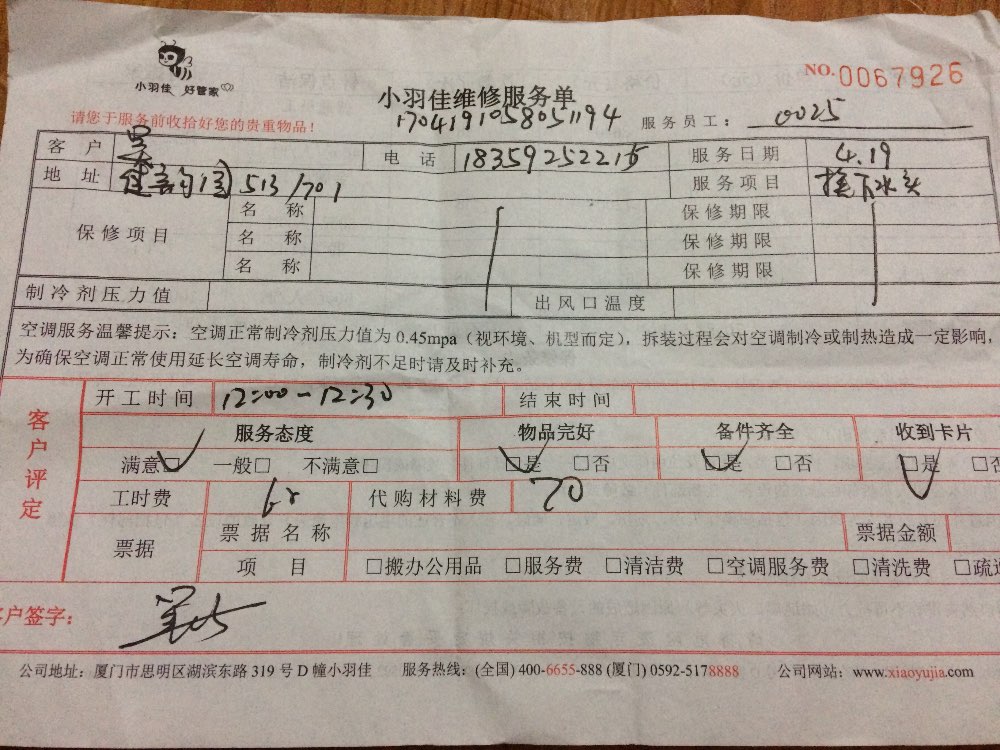 小羽佳 好管家
NO.0067926
小羽佳维修服务单
请您于服务前收拾好您的贵重物品!
1704191058051194 服务员工: 0025
客户 吴 电话 18359252215 服务日期 4.19
地址 513/701 服务项目 换下水头
保修项目 名称 保修期限
名称 保修期限
名称 保修期限
制冷剂压力值 出风口温度
空调服务温馨提示:空调正常制冷剂压力值为 0.45mpa(视环境、机型而定),拆装过程会对空调制冷或制热造成一定影响,
为确保空调正常使用延长空调寿命,制冷剂不足时请及时补充。
客户评定
开工时间 12:00-12:30 结束时间
服务态度 物品完好 备件齐全 收到卡片
满意□ 一般□ 不满意□ □是 □否 □是 □否 □是 □否
工时费 代购材料费 70
票据 票据名称 票据金额
项目 □搬办公用品 □服务费 □清洁费 □空调服务费 □清洗费 □疏
客户签字:
公司地址:厦门市思明区湖滨东路 319 号 D 幢小羽佳 服务热线:(全国) 400-6655-888 (厦门) 0592-5178888 公司网站:www.xiaoyujia.com